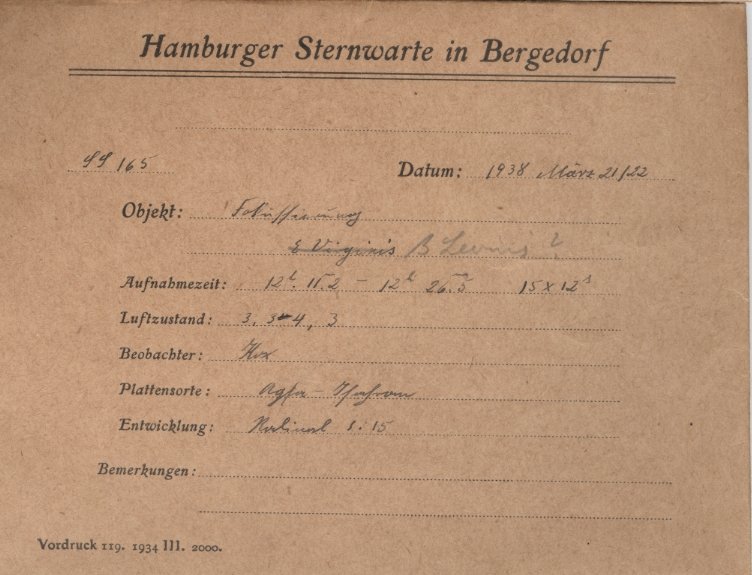 Hamburger Sternwarte in Bergedorf
SS 165 Datum: 1938 März 21/22
Objekt: Fokussierung
ε Virginis β Leonis ?
Aufnahmezeit: 12h 11.2 – 12h 26.5 15 x 12s
Luftzustand: 3, 3-4, 3
Beobachter:
Plattensorte: Agfa - Isochrom
Entwicklung: Rodinal 1:15
Bemerkungen:
Vordruck 119. 1934 III. 2000.